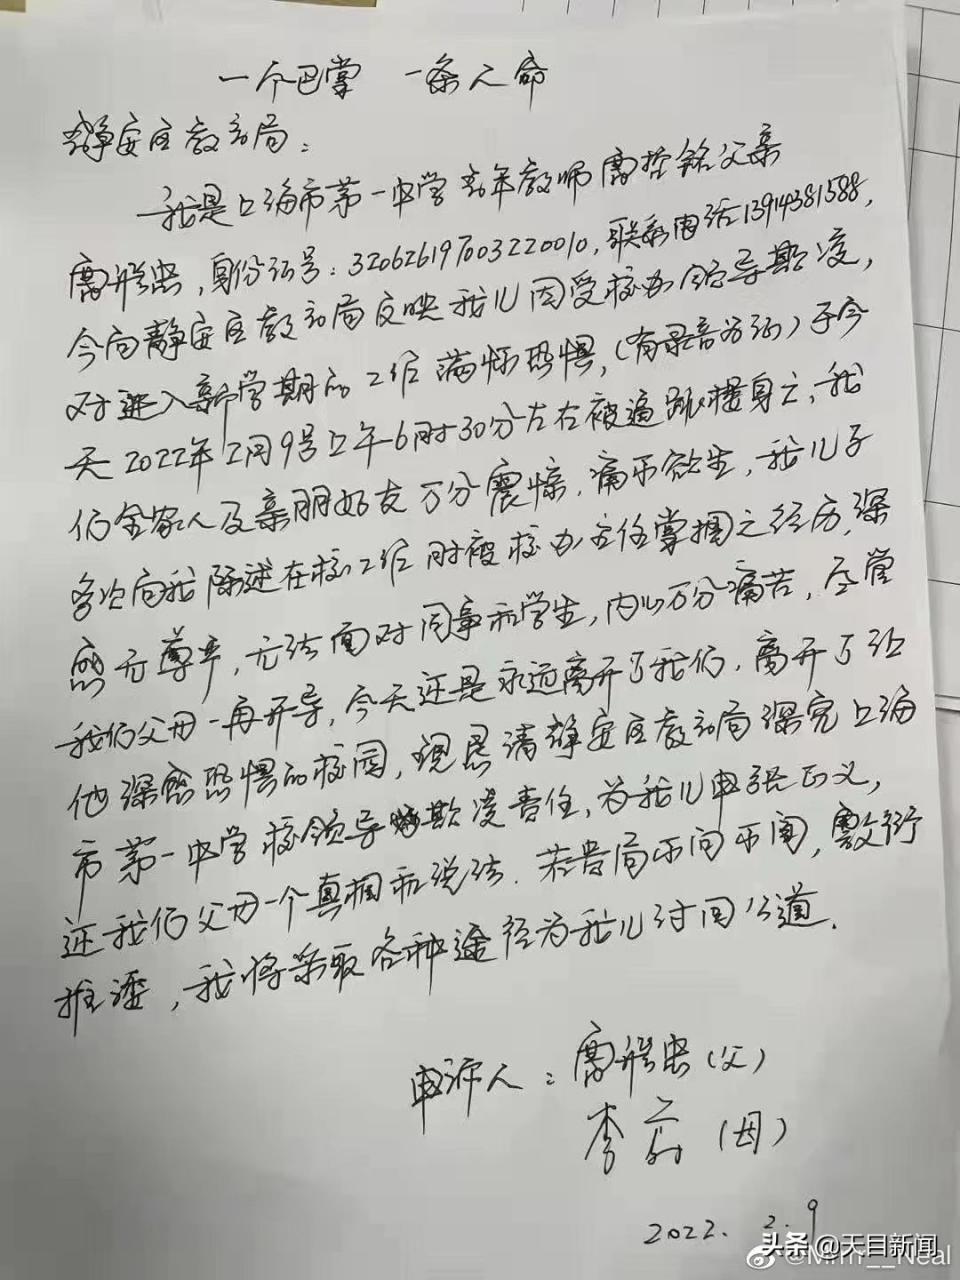 一个巴掌 一条人命
静安区教育局：
我是上海市第一中学青年教师 父亲
身份证号：320626197003220010，联系电话13914381588，
今向静安区教育局反映我儿因受校办领导欺凌，
对进入新学期的工作满怀恐惧，（有录音为证）于今
天2022年2月9号上午6时30分左右被逼跳楼身亡，我
们全家人及亲朋好友万分震惊，痛不欲生，我儿子
多次向我陈述在校工作时被校办主任掌掴之经历，深
感无尊严，无法面对同事和学生，内心万分痛苦，尽管
我们父母一再开导，今天还是永远离开了我们，离开了让
他深感恐惧的校园，现恳请静安区教育局深究上海
市第一中学校领导欺凌责任，为我儿申张正义，
还我们父母一个真相和说法．若贵局不问不闻，敷衍
推诿，我将采取各种途径为我儿讨回公道．
申诉人： （父）
李 （母）
2022．2．9
头条@天目新闻
@Mmm__Neal